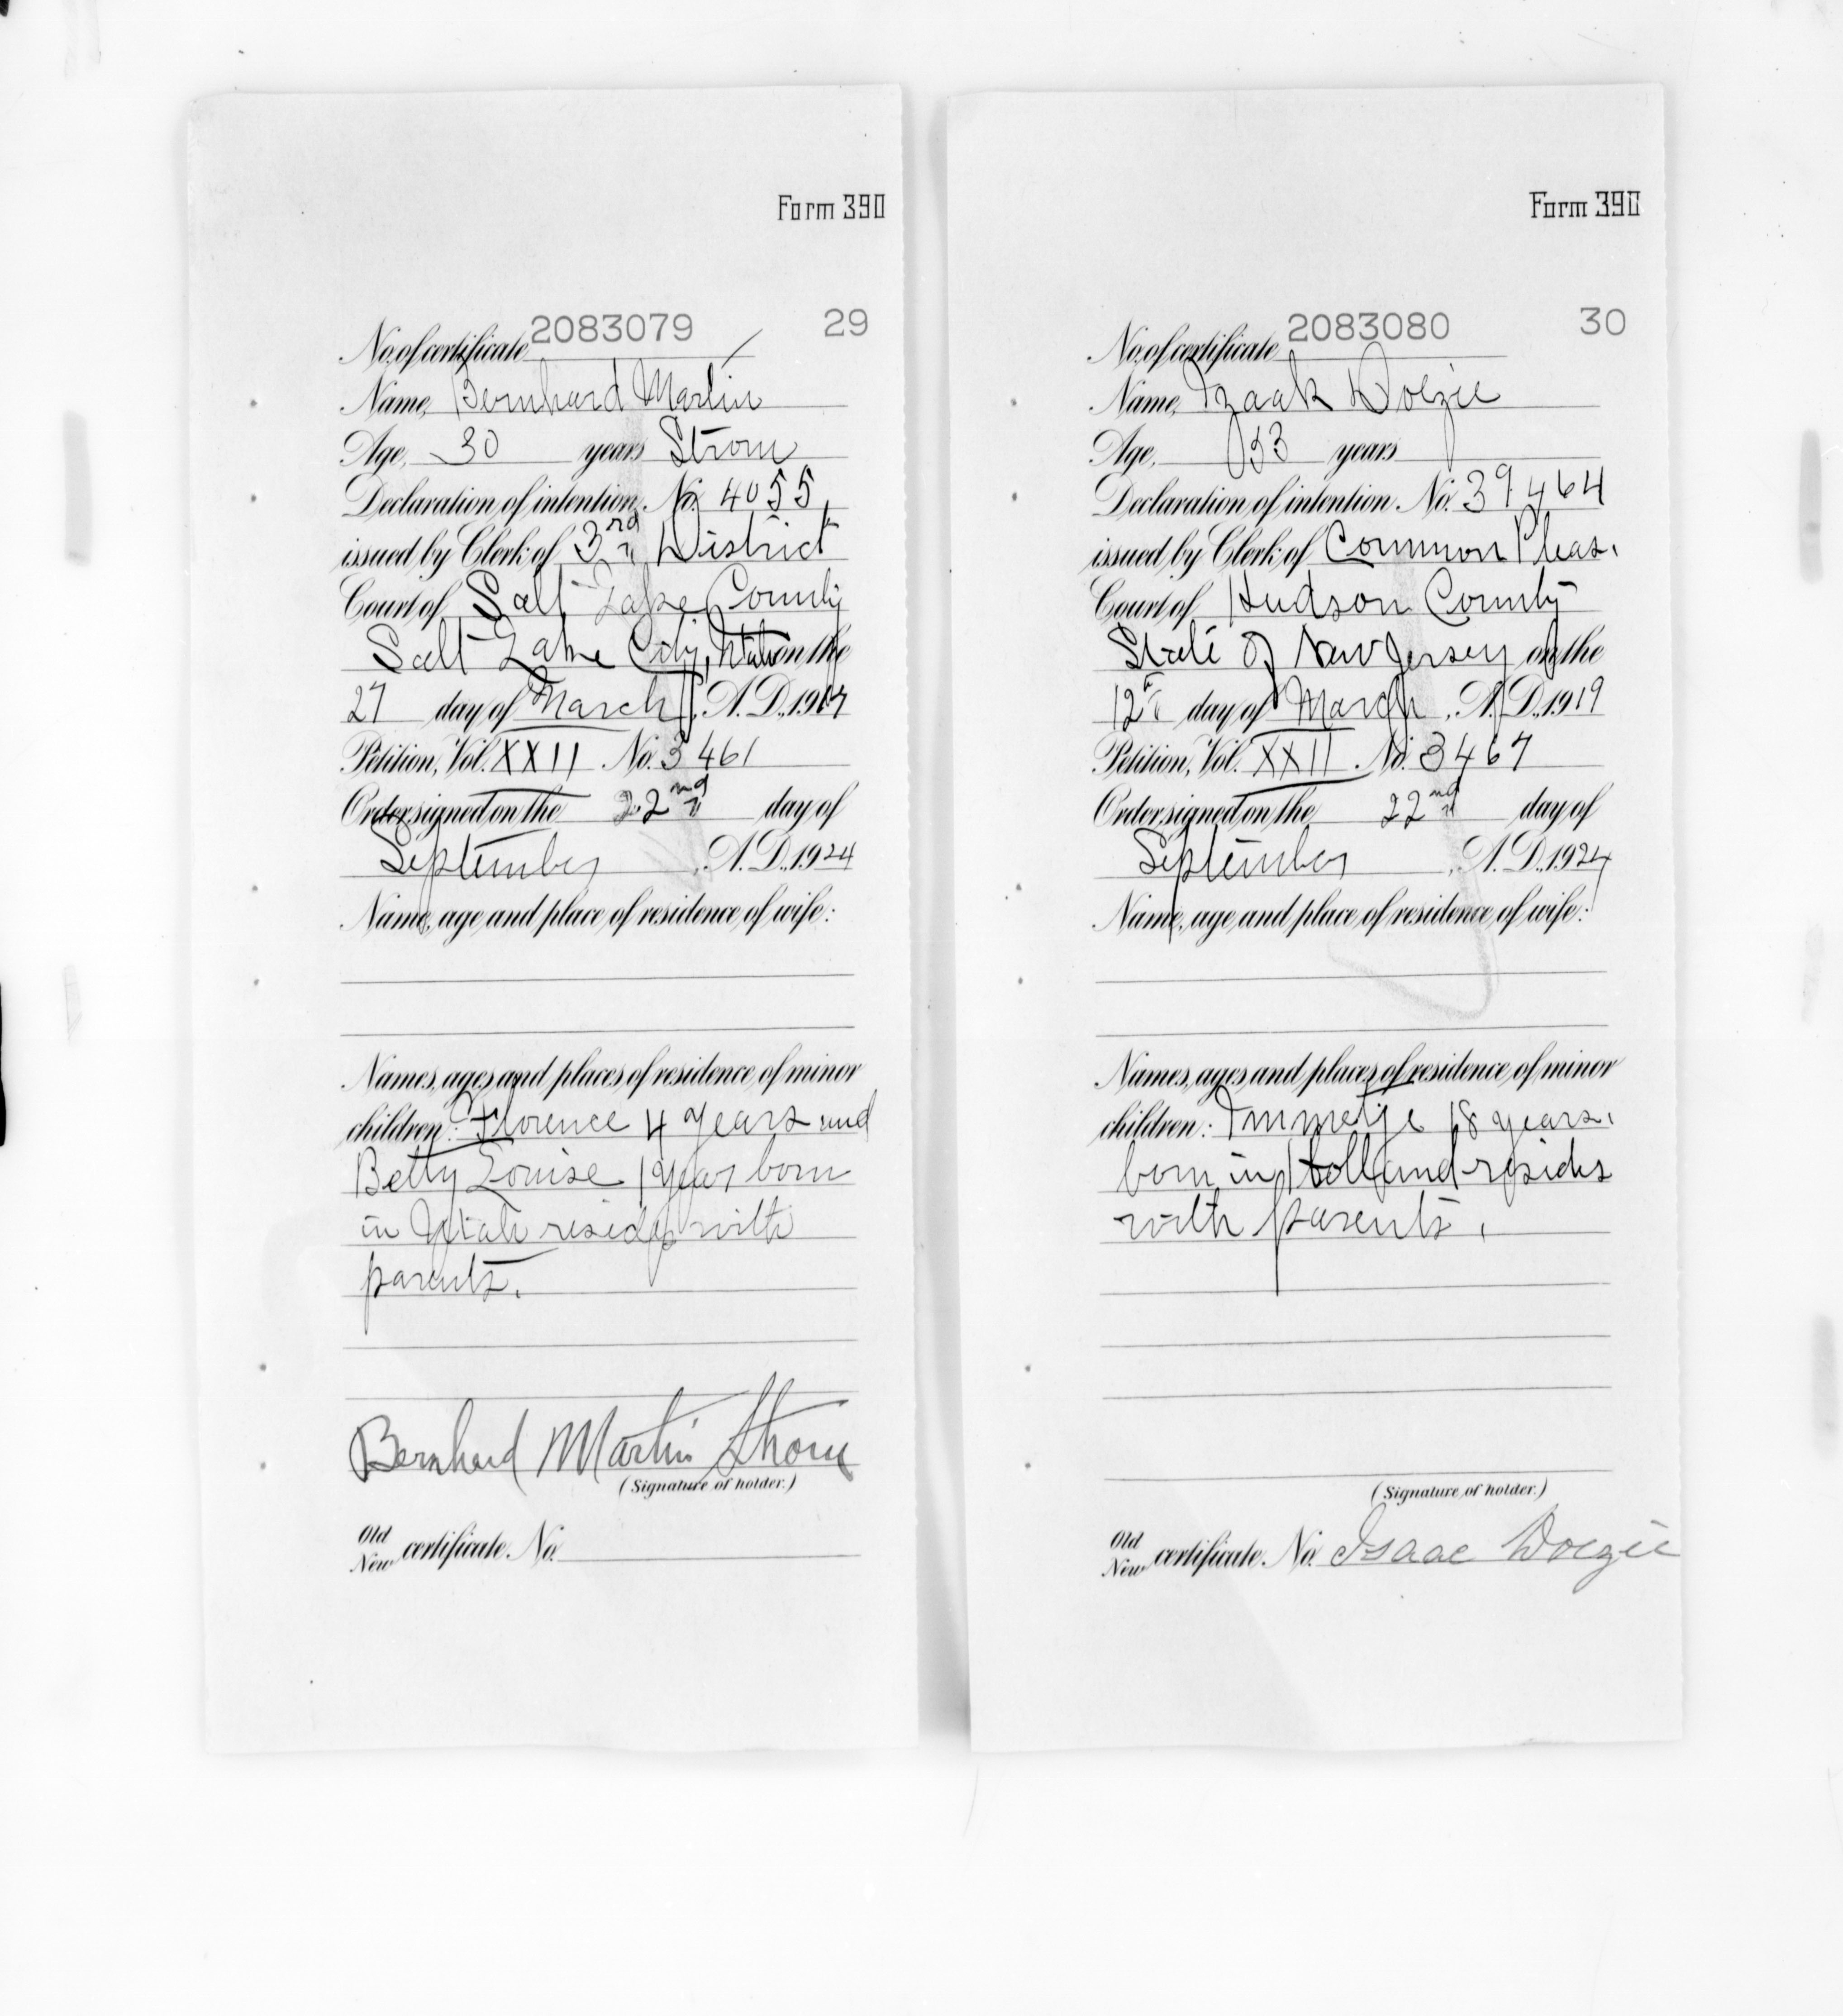 Form 390
2083079 29
No. of certificate
Name, Bernhard Martin
Age, 30 years Strom
Declaration of intention, No. 4055,
issued by Clerk of 3rd District
Court of Salt Lake County
Salt Lake City, Utah on the
27 day of March, A.D., 19
Petition, Vol. XXII No. 3461
Order signed on the 22nd day of
September, A.D., 1924
Name, age and place of residence of wife:
Names, ages and places of residence of minor
children: Florence 4 years and
Betty Louise 1 year born
in Utah reside with
parents.
Bernhard Martin Strom
(Signature of holder.)
Old
New certificate No.
Form 390
2083080 30
No. of certificate
Name, Izaak Doezie
Age, 53 years
Declaration of intention No. 39464
issued by Clerk of Common Pleas.
Court of Hudson County
State of New Jersey on the
12th day of March, A.D., 1919
Petition, Vol. XXII. No. 3467
Order signed on the 22nd day of
September, A.D., 1924
Name, age and place of residence of wife:
Names, ages and places of residence of minor
children: Immetje 18 years.
born in Holland resides
with parents.
(Signature of holder.)
Old
New certificate No. Isaac Doezie